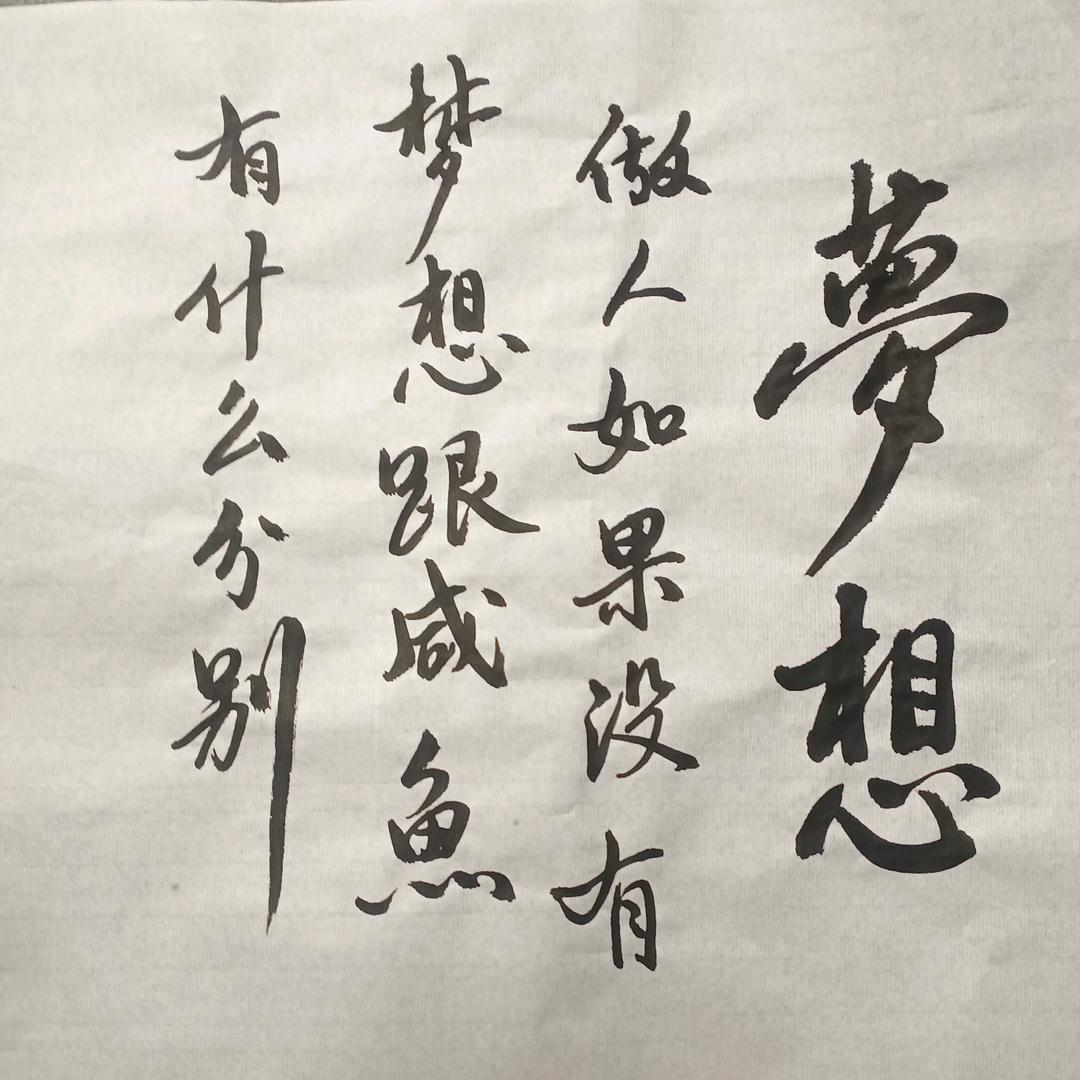 夢想
做人如果没有
梦想跟咸魚
有什么分别